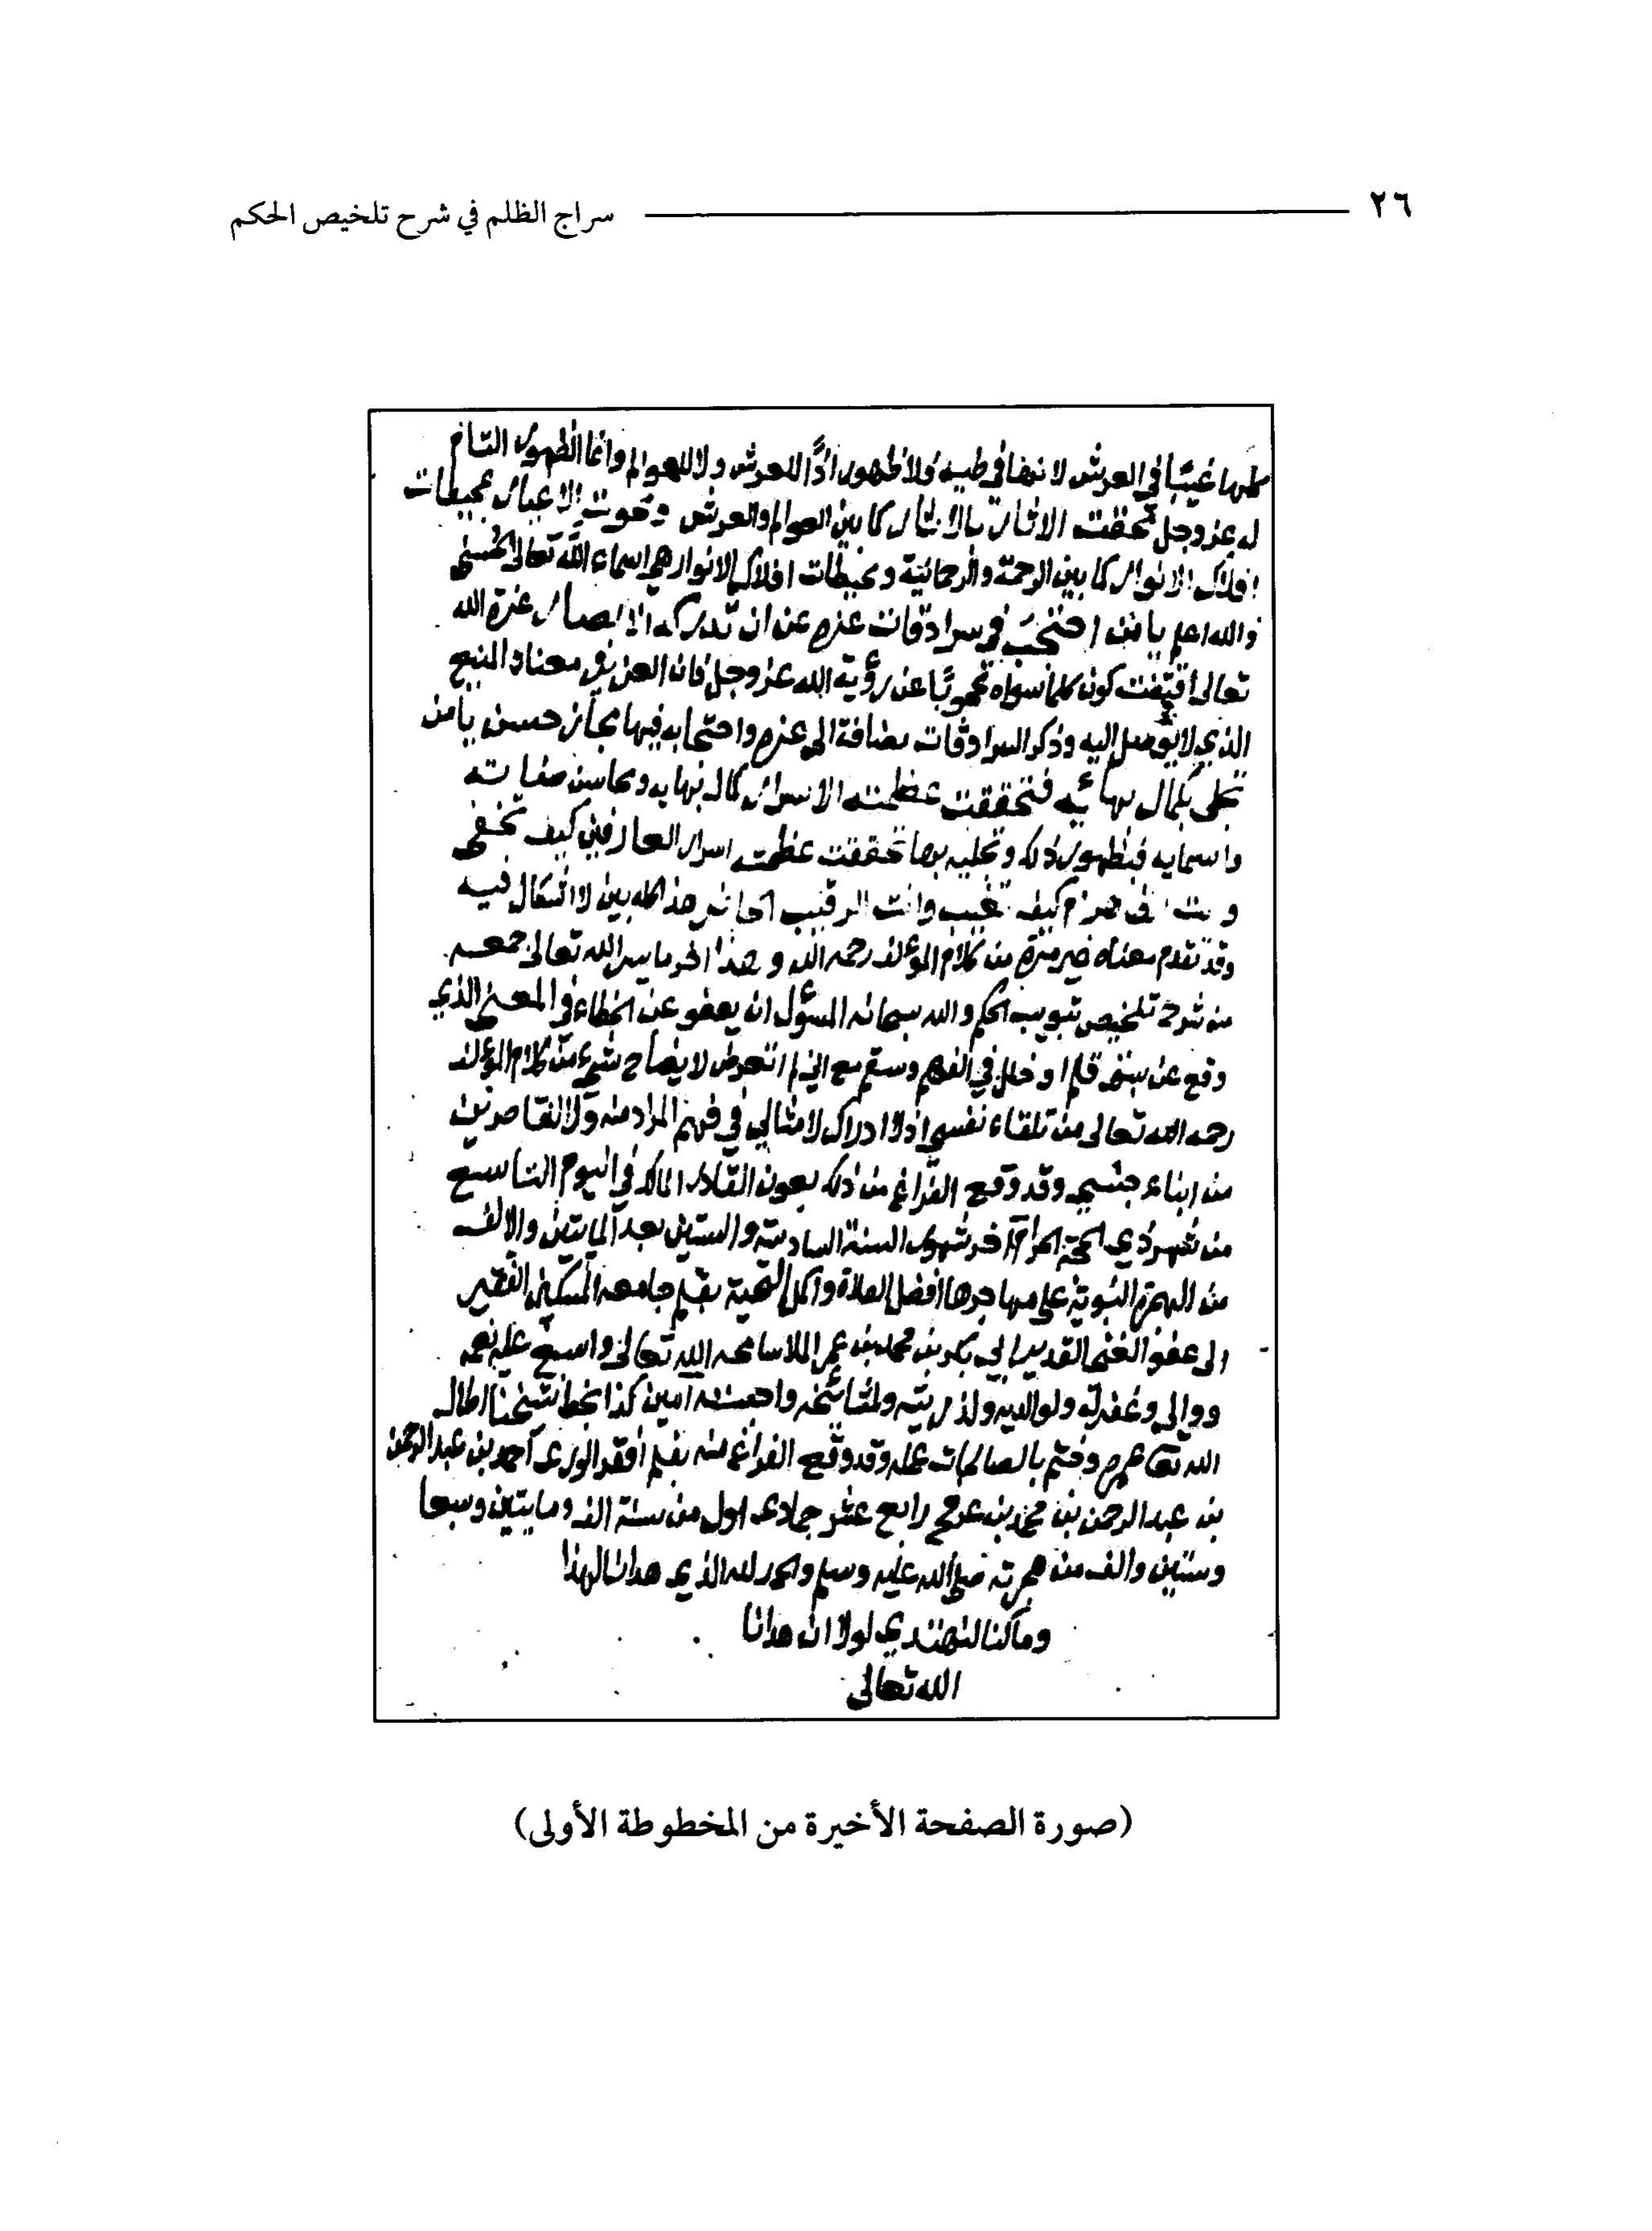 ٢٦ سراج الظلم في شرح تلخيص الحكم
كلها غيبًا في العرش لانها في طيه فلا ظهور اذًا للعرش ولا للعوالم وانما الظهور التام
له عز وجل محقت الاثار بالاثار كما بين العوالم والعرش ومحوت الاغيار بمحيطات
افلاك الانوار كما بين الرحمة والرحمانية ومحيطات افلاك الانوار هي اسماء الله تعالى الحسنى
والله اعلم يا من احتجب في سرادقات عزه عن ان تدركه الابصار عزة الله
تعالى اقتضت كون كلما سواه محجوبًا عن رؤية الله عز وجل فان العزيز معناه المنيع
الذي لا يوصل اليه وذكر السرادقات مضافة الى عزه واحتجابه فيها مجاز حسن يا من
تجلى بكمال بهائه فتحققت عظمته الاسرار كمال بهايه ومحاسن صفاته
واسمايه فبظهور ذلك وتجليه بها تحققت عظمته اسرار العارفين كيف تخفى
وانت الظاهر ام كيف تغيب وانت الرقيب الحاضر هذا كله بين لا اشكال فيه
وقد تقدم معناه غير مرة من كلام المؤلف رحمه الله وهذا اخر ما يسر الله تعالى جمعه
من شرح تلخيص تبويب الحكم والله سبحانه المسؤل ان يعفو عن الخطاء في المعنى الذي
وقع عن سبق قلم او خلل في الفهم وسقم مع اني لم اتعرض لايضاح شيء من كلام المؤلف
رحمه الله تعالى من تلقاء نفسي اذ لا ادراك لامثالي في فهم المراد منه ولا للقاصرين
من ابناء جنسي وقد وقع الفراغ من ذلك بعون القادر المالك في اليوم التاسع
من شهر ذي الحجة الحرام آخر شهور السنة السادسة والستين بعد المايتين والالف
من الهجرة النبوية على مهاجرها افضل الصلاة واكمل التحية بقلم جامعه المسكين الفقير
الى عفو الغني القدير ابي بكر بن محمد بن عمر الملا سامحه الله تعالى واسبغ عليه نعمه
ووالى وغفر له ولوالديه ولذريته ولمشائخه واحبته آمين كذا بخط شيخنا اطال
الله تعالى عمره وختم بالصالحات عمله وقد وقع الفراغ منه بقلم افقر الورى احمد بن عبد الرحمن
بن عبد الرحمن بن محمد بن عرفج رابع عشر جمادى اول من سنة الف ومايتين وسبعا
وستين والف من هجرته صلى الله عليه وسلم والحمد لله الذي هدانا لهذا
وما كنا لنهتدي لولا ان هدانا
الله تعالى
(صورة الصفحة الأخيرة من المخطوطة الأولى)